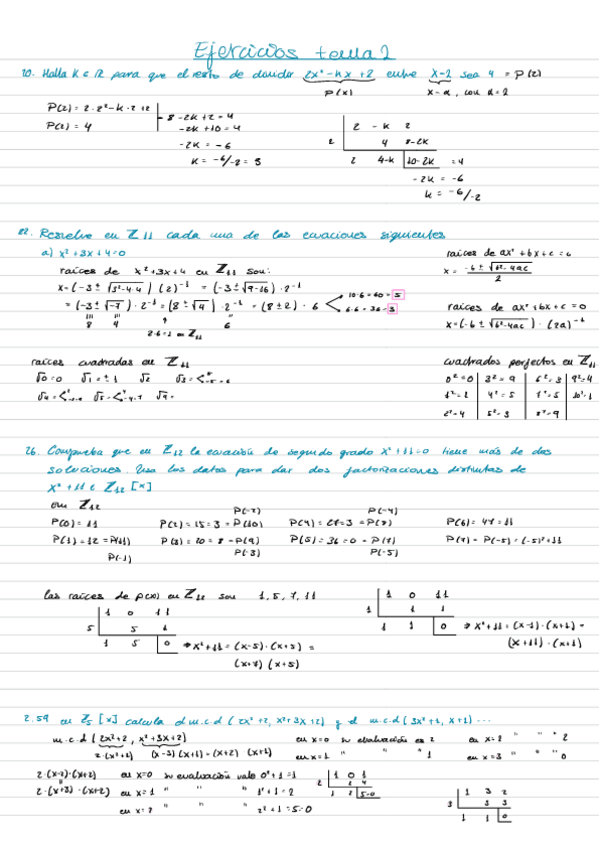 Ejercicios tema 2
10. Halla K ∈ R para que el resto de dividir 2x² - kx + 2 entre x-2 sea 4 = P(2)
P(x) x-α, con α=2
P(2) = 2·2² - k·2 + 2
P(2) = 4
8 - 2k + 2 = 4
-2k + 10 = 4
-2k = -6
k = -6/-2 = 3
2 -k 2
2 4 8-2k
2 4-k 10-2k = 4
-2k = -6
k = -6/-2
22. Resuelve en Z11 cada una de las ecuaciones siguientes
a) x² + 3x + 4 = 0
raíces de x² + 3x + 4 en Z11 son:
x = (-3 ± √(3²-4·4)) (2)⁻¹ = (-3 ± √(9-16)) · 2⁻¹
= (-3 ± √-7) · 2⁻¹ = (8 ± √4) · 2⁻¹ = (8 ± 2) · 6
10·6 = 60 = 5
6·6 = 36 = 3
8 4 6
2·6 = 1 en Z11
raíces de ax² + bx + c = 0
x = -b ± √(b²-4ac)
2
raíces de ax² + bx + c = 0
x = (-b ± √(b²-4ac)) · (2a)⁻¹
raíces cuadradas en Z11
√0 = 0 √1 = ±1 √2 √3
√4 √5
cuadrados perfectos en Z11
0² = 0 3² = 9 6² = 3 9² = 4
1² = 1 4² = 5 7² = 5 10² = 1
2² = 4 5² = 3 8² = 9
26. Comprueba que en Z12 la ecuación de segundo grado x² + 11 = 0 tiene más de dos
soluciones. Usa los datos para dar dos factorizaciones distintas de
x² + 11 ∈ Z12 [x]
em Z12
P(-2) P(-4)
P(0) = 11 P(2) = 15 = 3 = P(10) P(4) = 27 = 3 = P(8) P(6) = 47 = 11
P(1) = 12 = P(11) P(3) = 20 = 8 = P(9) P(5) = 36 = 0 = P(7) P(7) = P(-5) = (-5)² + 11
P(-1) P(-3) P(-5)
las raíces de p(x) en Z12 son 1, 5, 7, 11
1 0 11
5 5 1
1 5 0
⇒ x² + 11 = (x-5)·(x+5) =
(x+7) (x+5)
1 0 11
1 1 1
1 1 0
⇒ x² + 11 = (x-1)·(x+1) =
(x+11)·(x+1)
2.59 en Z5 [x] calcula el m.c.d (2x²+2, x²+3x+2) y el m.c.d (3x²+2, x+1) ...
m.c.d (2x²+2, x²+3x+2)
2·(x²+1) (x-3)(x+1) = (x+2) (x+1)
en x=0 su evaluación es 2 en x=2 " " 2
en x=1 " " 1 en x=3 " " 0
2·(x-2)·(x+2)
2·(x+3)·(x+2)
en x=0 su evaluación vale 0²+1 = 1
en x=1 " " " 1²+1 = 2
en x=2 " " " 2²+1 = 5 = 0
1 0 1
2 2 4
1 2 5=0
1 3 2
3 3 3
1 1 0